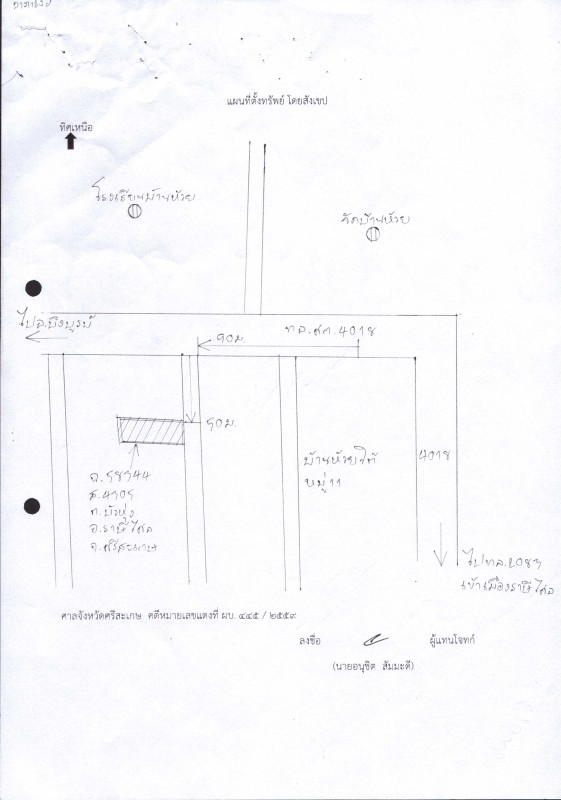 แผนที่ตั้งทรัพย์ โดยสังเขป
ทิศเหนือ
โรงเรียนบ้านห้วย
วัดบ้านห้วย
ไปอ.บึงบูรพ์
ทล.ศก.4018
50ม.
บ้านห้วยใต้
หมู่11
4018
ต.บัวหุ่ง
อ.ราษีไศล
จ.ศรีสะเกษ
เข้าเมืองราษีไศล
ศาลจังหวัดศรีสะเกษ คดีหมายเลขแดงที่ ผบ. ๔๔๕ / ๒๕๕๙
ลงชื่อ ผู้แทนโจทก์
(นายอนุชิต สัมมะดี)